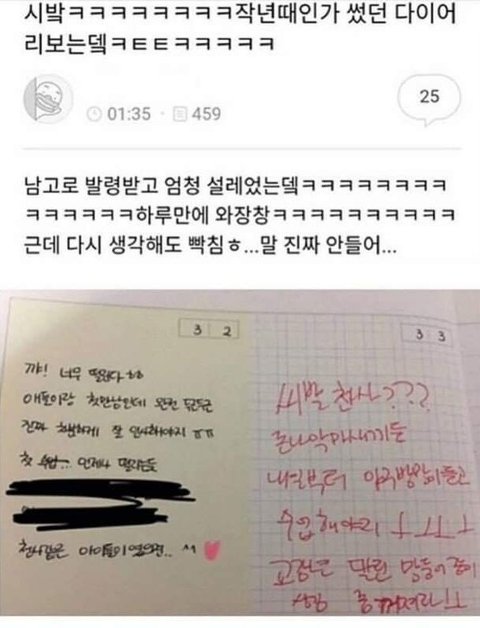 시밬ㅋㅋㅋㅋㅋㅋㅋㅋ작년때인가 썼던 다이어
리보는뎈ㅋㅌㅌㅋㅋㅋㅋㅋ
01:35 459
25
남고로 발령받고 엄청 설레었는뎈ㅋㅋㅋㅋㅋㅋㅋㅋ
ㅋㅋㅋㅋㅋㅋ하루만에 와장창ㅋㅋㅋㅋㅋㅋㅋㅋㅋㅋ
근데 다시 생각해도 빡침ㅎ...말 진짜 안들어...
3 2
꺄! 너무 떨린다ㅎㅎ
애들이랑 첫만남인데 완전 두근두근
진짜 하게 잘 인사해야지 ㅠㅠ
첫 수업... 언제나 떨리는듯
천사같은 아이들이였으면.. ^^
3 3
씨발 천사???
존나 악마새기들
내일부터 야구방망이 들고
수업해야지 ㅗㅜㅜ
교장은 말린 망둥이 같이
생김 좀 꺼져라ㅗ